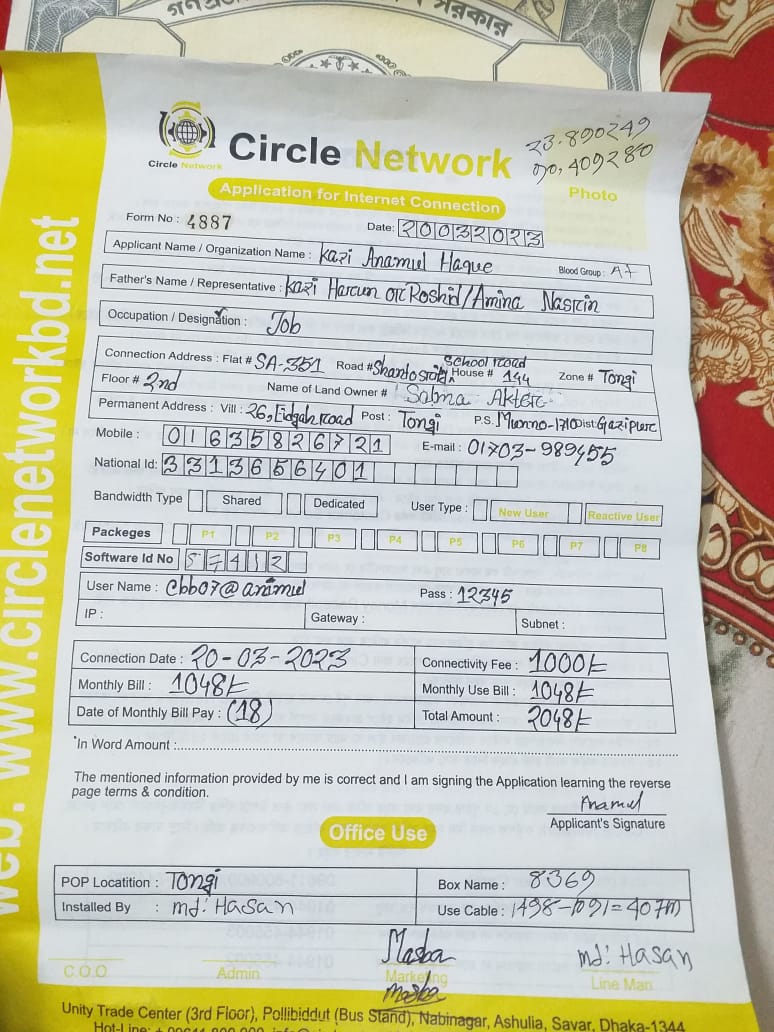 সরকার
Circle Network
Circle Network
23.890249
90.409280
Photo
Application for Internet Connection
Form No : 4887
Date: 20032023
Applicant Name / Organization Name : Kazi Anamul Haque Blood Group : A+
Father's Name / Representative : Kazi Harun or Roshid/Amina Nasrin
Occupation / Designation : Job
Connection Address : Flat # SA-351 Road # School road House # 194 Zone # Tongi
Floor # 2nd Name of Land Owner # Salma Akter
Permanent Address : Vill : 26, Eidgah road Post : Tongi P.S. Munno-1710 Dist: Gazipur
Mobile : 01635826721 E-mail : 01703-989455
National Id: 3313656401
Bandwidth Type Shared Dedicated User Type : New User Reactive User
Packeges P1 P2 P3 P4 P5 P6 P7 P8
Software Id No 57412
User Name : cbb07@animul Pass : 12345
IP : Gateway : Subnet :
Connection Date : 20-03-2023 Connectivity Fee : 1000৳
Monthly Bill : 1048৳ Monthly Use Bill : 1048৳
Date of Monthly Bill Pay : (18) Total Amount : 2048৳
*In Word Amount :
The mentioned information provided by me is correct and I am signing the Application learning the reverse
page terms & condition.
Anamul
Applicant's Signature
Office Use
POP Locatition : Tongi Box Name : 8369
Installed By : md: Hasan Use Cable : 1498-1091=407m
md: Hasan
C.O.O Admin Marketing Line Man
Unity Trade Center (3rd Floor), Pollibiddut (Bus Stand), Nabinagar, Ashulia, Savar, Dhaka-1344
web: www.circlenetworkbd.net